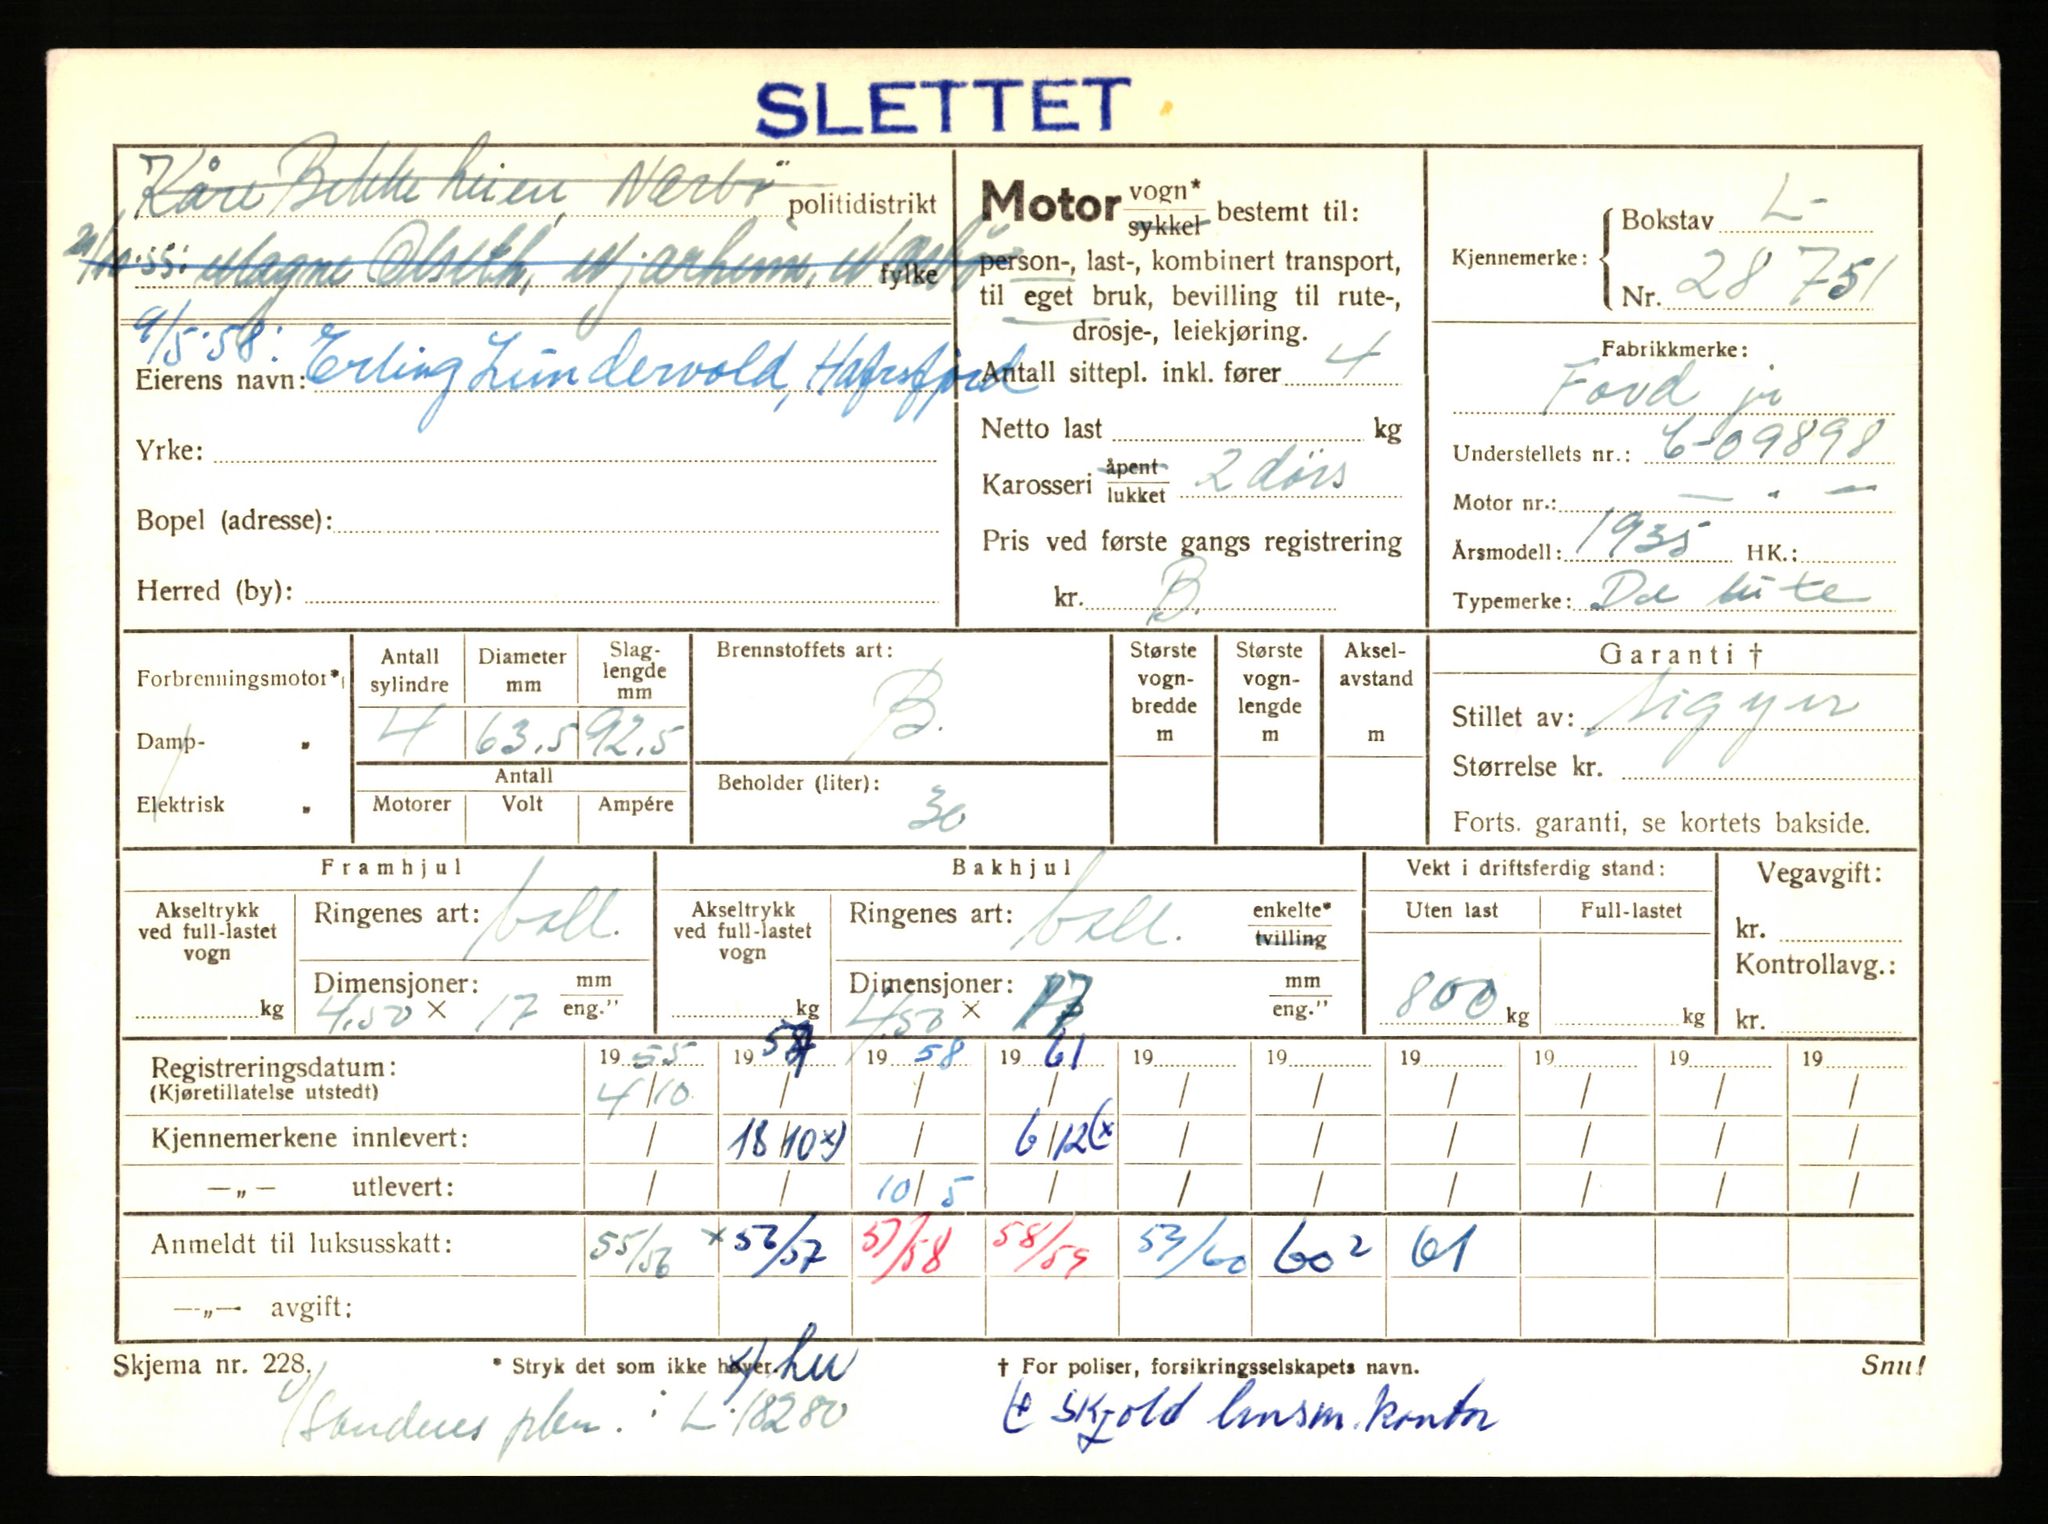 SLETTET
Kåre Bekkeheien, Nærbö politidistrikt
Magne Olseth, Nærbö fylke
9/5-58: Erling Lundervold, Hafrsfjord
Eierens navn:
Yrke:
Bopel (adresse):
Herred (by):
Motor vogn* sykkel bestemt til:
person-, last-, kombinert transport,
til eget bruk, bevilling til rute-,
drosje-, leiekjøring.
Antall sittepl. inkl. fører 4
Netto last kg
Karosseri åpent lukket 2 dørs
Pris ved første gangs registrering
kr. B.
Kjennemerke: Bokstav L-
Nr. 28751
Fabrikkmerke:
Ford jr
Understellets nr.: C-09898
Motor nr.: — " —
Årsmodell: 1935 HK.:
Typemerke: De luxe
Forbrenningsmotor*
Damp- "
Elektrisk "
Antall sylindre Diameter mm Slag-lengde mm
4 63,5 92,5
Antall
Motorer Volt Ampére
Brennstoffets art:
B.
Beholder (liter):
30
Største vogn-bredde m
Største vogn-lengde m
Aksel-avstand m
Garanti †
Stillet av: Sigyn
Størrelse kr.
Forts. garanti, se kortets bakside.
Framhjul
Akseltrykk ved full-lastet vogn kg
Ringenes art: ball.
Dimensjoner: mm
4,50 × 17 eng."
Bakhjul
Akseltrykk ved full-lastet vogn kg
Ringenes art: ball. enkelte* tvilling
Dimensjoner: mm
4,50 × 17 eng."
Vekt i driftsferdig stand:
Uten last Full-lastet
800 kg kg
Vegavgift:
kr.
Kontrollavg.:
kr.
Registreringsdatum: 1955 1957 1958 1961 19 19 19 19 19 19
(Kjøretillatelse utstedt) 4/10 / / / / / / / / /
Kjennemerkene innlevert: / 18/10 x) / 6/12 (x / / / / / /
—„— utlevert: / / 10/5 / / / / / / /
Anmeldt til luksusskatt: 55/56 x 56/57 57/58 58/59 59/60 60² 61
—„— avgift:
Skjema nr. 228. * Stryk det som ikke høyer. † For poliser, forsikringsselskapets navn. Snu!
x) hu
Sandnes : L-18280
Skjold lensm.kontor